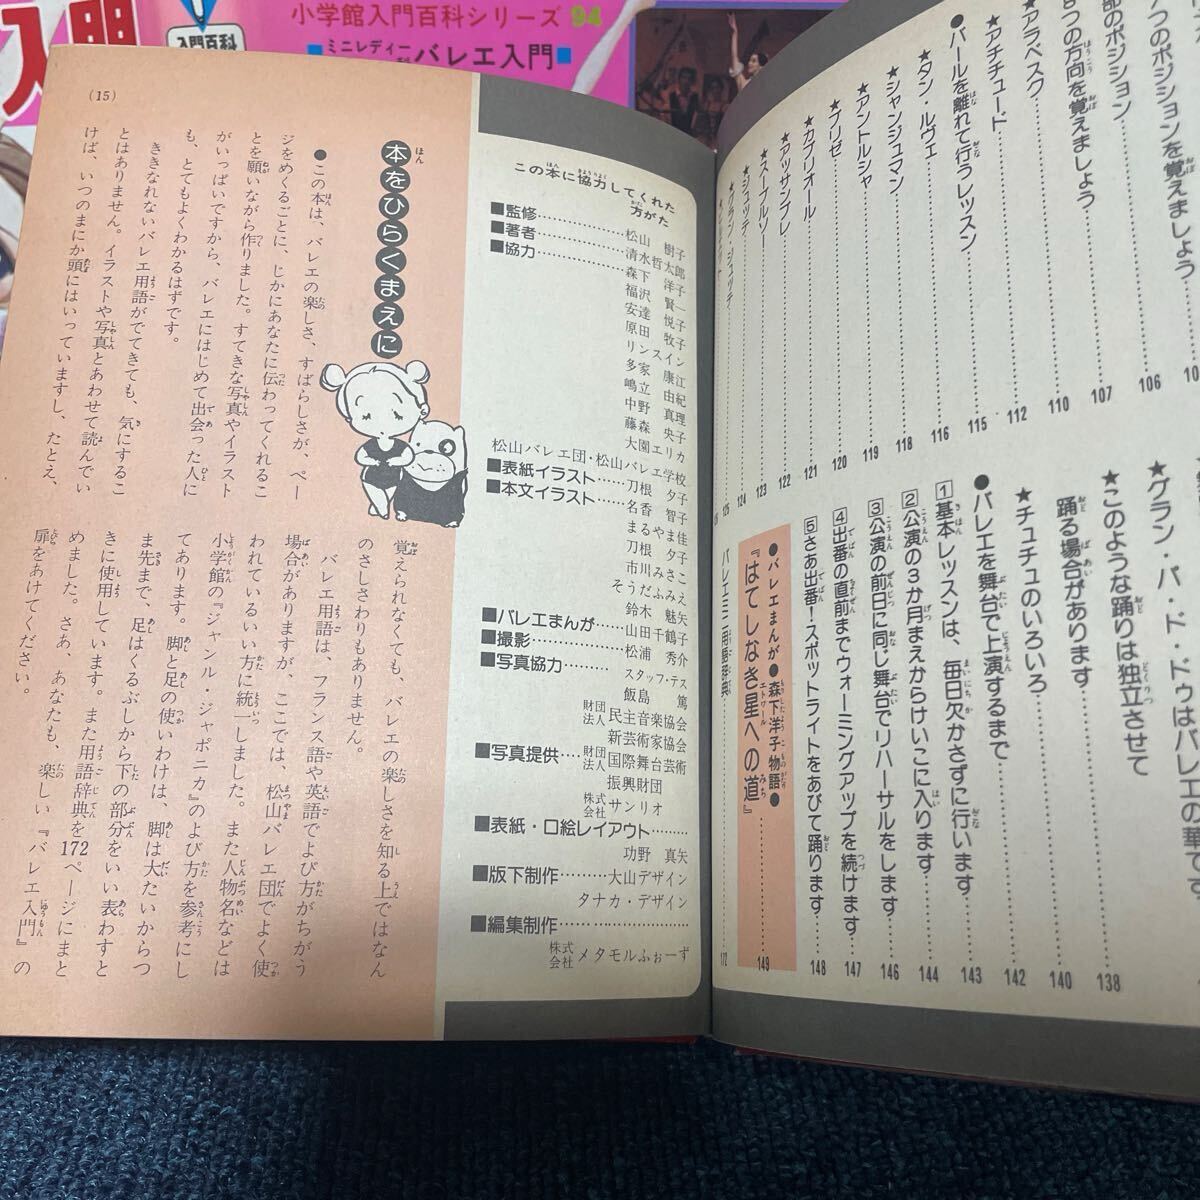 入門
入門百科
小学館入門百科シリーズ 94
ミニレディー
バレエ入門
7つのポジションを覚えましょう
部のポジション
8つの方向を覚えましょう
★アラベスク
★アチチュード
●バールを離れて行うレッスン
★タン・ルヴェ
★シャンジュマン
★アントルシャ
★ブリゼ
★カブリオール
★アッサンブレ
★スーブルソー
★ジュッテ
★グラン・ジュッテ
106
107
110
112
115
116
118
119
120
121
122
123
124
125
★グラン・パ・ド・ドゥはバレエの華です
★このような踊りは独立させて
踊る場合があります
138
★チュチュのいろいろ
140
●バレエを舞台で上演するまで
142
1 基本レッスンは、毎日欠かさずに行います
143
2 公演の3か月まえからけいこに入ります
144
3 公演の前日に同じ舞台でリハーサルをします
146
4 出番の直前までウォーミングアップを続けます
147
5 さあ出番・スポットライトをあびて踊ります
148
●バレエまんが●森下洋子物語●
『はてしなき星への道』
エトワール
149
バレエミニ用語辞典
172
この本に協力してくれた
方がた
■監修 松山 樹子
■著者 清水哲太郎
■協力 森下 洋子
福沢 賢一
安達 悦子
原田 牧子
リンスイン
多家 康江
嶋立 由紀
中野 真理
藤森 央子
大園エリカ
松山バレエ団・松山バレエ学校
■表紙イラスト 刀根 夕子
■本文イラスト 名香 智子
まるやま佳
刀根 夕子
市川みさこ
そうだふみえ
鈴木 魅矢
■バレエまんが 山田千鶴子
■撮影 松浦 秀介
■写真協力 スタッフ・テス
飯島 篤
財団法人 民主音楽協会
新芸術家協会
■写真提供 財団法人 国際舞台芸術
振興財団
株式会社 サンリオ
■表紙・口絵レイアウト
功野 真矢
■版下制作 大山デザイン
タナカ・デザイン
■編集制作
株式会社 メタモルふぉーず
本をひらくまえに
●この本は、バレエの楽しさ、すばらしさが、ペー
ジをめくるごとに、じかにあなたに伝わってくれるこ
とを願いながら作りました。すてきな写真やイラスト
がいっぱいですから、バレエにはじめて出会った人に
も、とてもよくわかるはずです。
ききなれないバレエ用語がでてきても、気にするこ
とはありません。イラストや写真とあわせて読んでい
けば、いつのまにか頭にはいっていますし、たとえ、
覚えられなくても、バレエの楽しさを知る上ではなん
のさしさわりもありません。
バレエ用語は、フランス語や英語でよび方がちがう
場合がありますが、ここでは、松山バレエ団でよく使
われているいい方に統一しました。また人物名などは
小学館の『ジャンル・ジャポニカ』のよび方を参考にし
てあります。脚と足の使いわけは、脚は大たいからつ
ま先まで、足はくるぶしから下の部分をいい表わすと
きに使用しています。また用語辞典を172ページにまと
めました。さあ、あなたも、楽しい『バレエ入門』の
扉をあけてください。
(15)